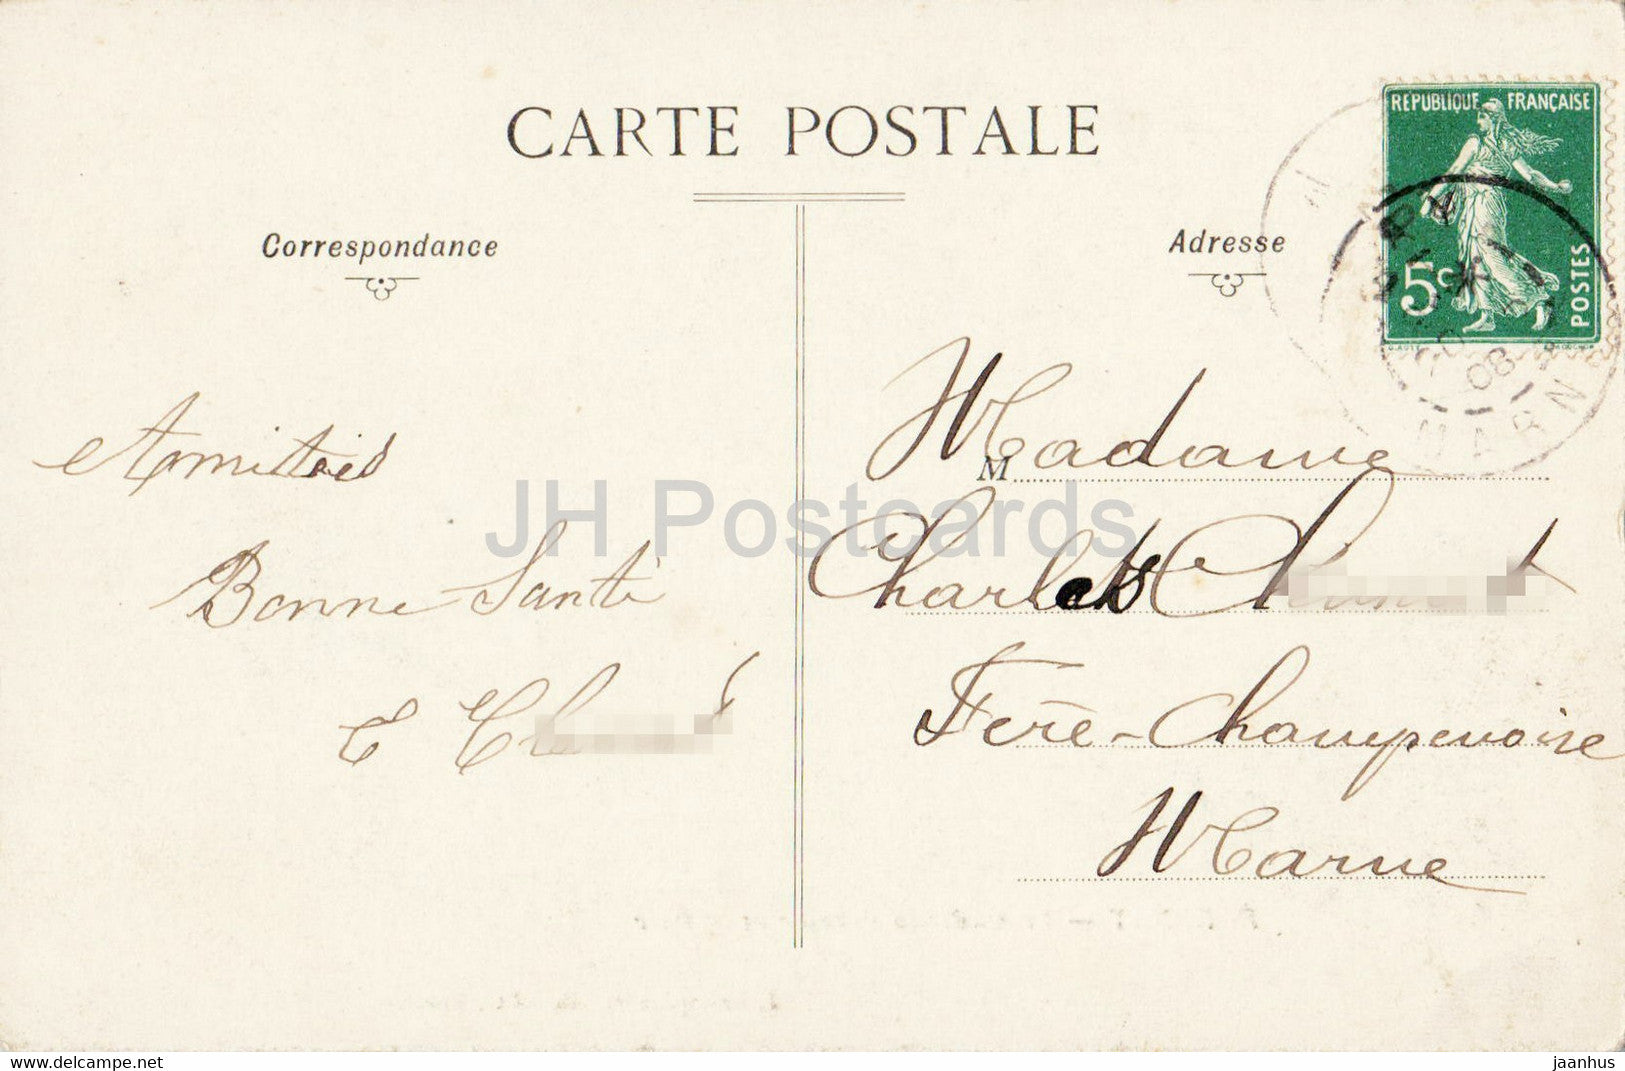 CARTE POSTALE
Correspondance
Adresse
RÉPUBLIQUE FRANÇAISE
5c
POSTES
08
MARNE
Amitiés
Bonne Santé
E
M
Madame
Charles
Fère-Champenoise
Marne
JH Postcards
www.delcampe.net
jaanhus